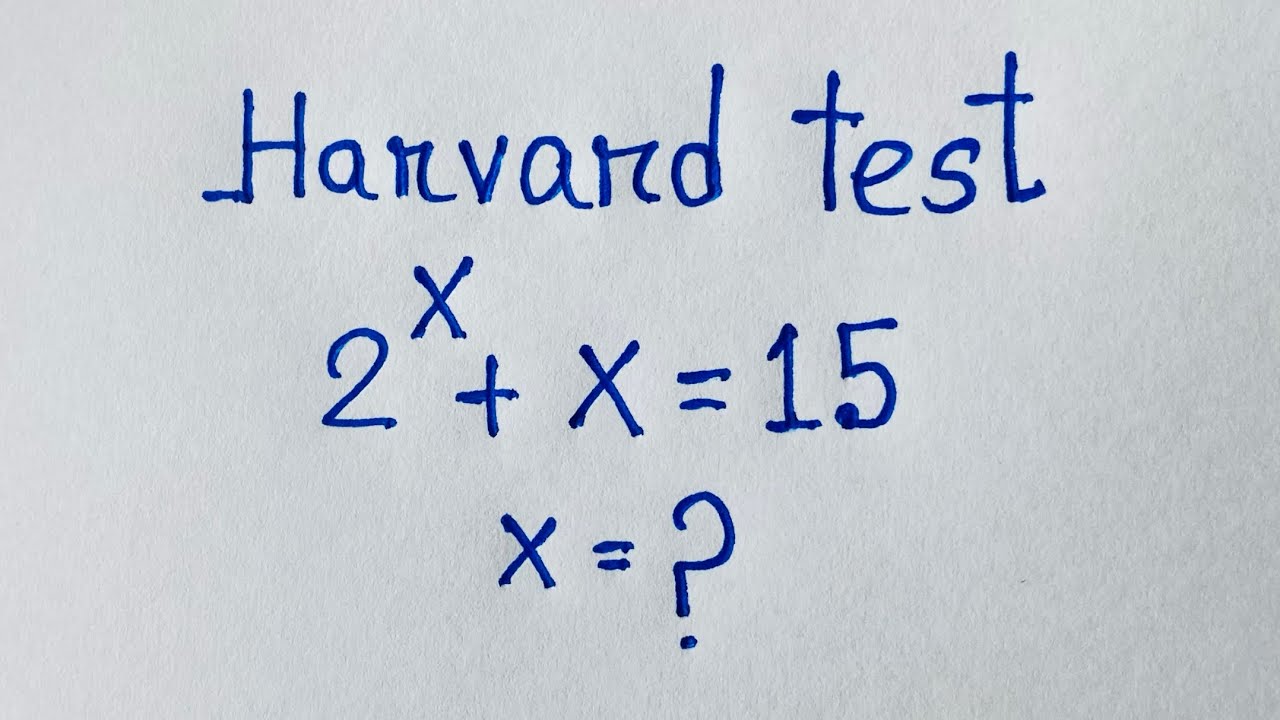 Harvard test
2^x + x = 15
x = ?